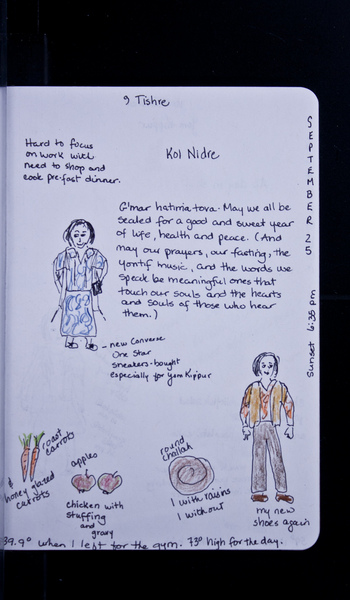 9 Tishre
Hard to focus
on work with
need to shop and
cook pre-fast dinner.
Kol Nidre
SEPTEMBER 25
Sunset 6:38 pm
G'mar hatima tova. May we all be
sealed for a good and sweet year
of life, health and peace. (And
may our prayers, our fasting, the
yontif music, and the words we
speak be meaningful ones that
touch our souls and the hearts
and souls of those who hear
them.)
- new Converse
One Star
sneakers - bought
especially for Yom Kippur
roast
carrots
&
honey glazed
carrots
apples
chicken with
stuffing
and
gravy
round
challah
1 with raisins
1 without
my new
shoes again
39.9° when I left for the gym. 73° high for the day.